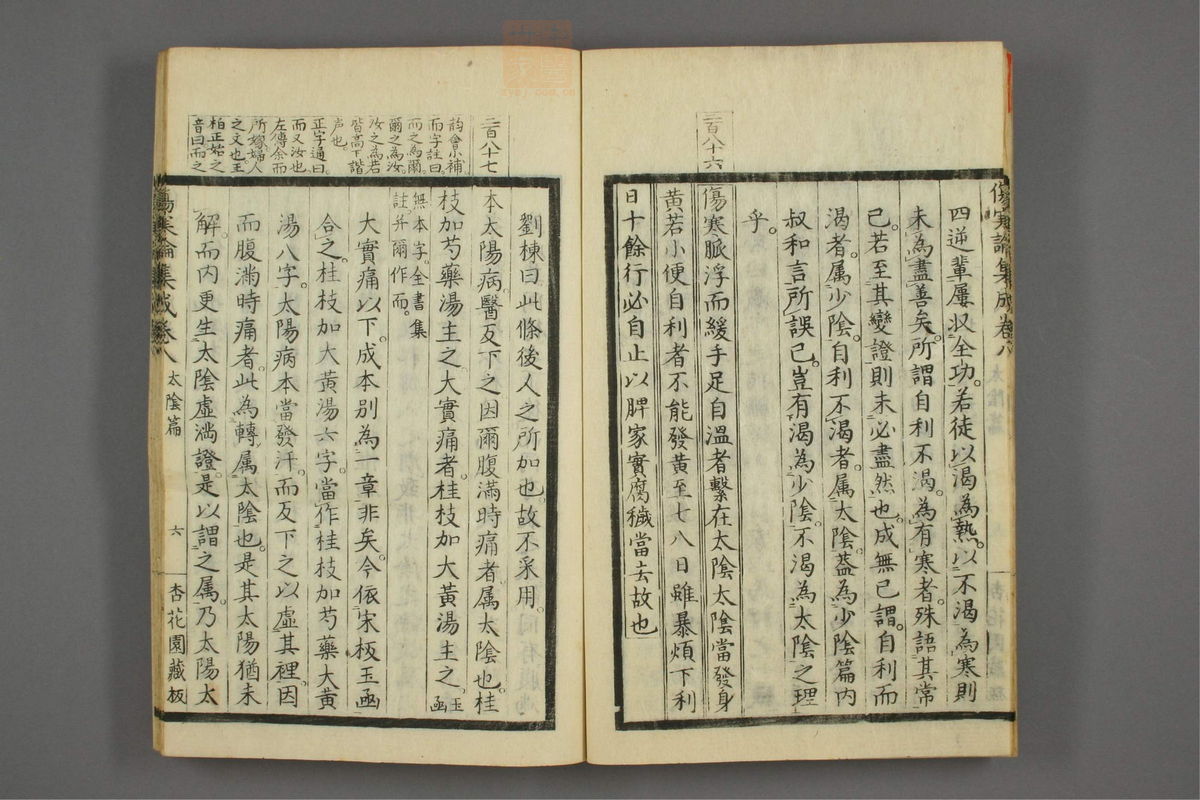 傷寒論集成卷八
四逆輩屢収全功。若徒以渴為熱。以不渴為寒則
未為盡善矣。所謂自利不渴。為有寒者。殊語其常
已。若至其變證則未必盡然也。成無己謂。自利而
渴者。属少陰。自利不渴者。属太陰。葢為少陰篇内
叔和言所誤已。豈有渴為少陰。不渴為太陰之理
乎。
二百八十六
傷寒脈浮而緩手足自溫者繫在太陰太陰當發身
黃若小便自利者不能發黃至七八日雖暴煩下利
日十餘行必自止以脾家實腐穢當去故也
劉棟曰此條後人之所加也。故不采用。
二百八十七
本太陽病。醫反下之因爾腹滿時痛者。属太陰也。桂
枝加芍藥湯主之。大實痛者。桂枝加大黃湯主之。玉函
無本字。全書集
註。并爾作而。
韵會小補。
而字註曰。
而之為爾。
爾之為汝。
汝之為若。
皆高下諧
声也。
正字通曰。
而又汝也。
左傳余而
所嫁婦人
之文也。王
柏正始之
音曰而之
大實痛以下。成本別為一章非矣。今依宋板玉函
合之。桂枝加大黃湯六字。當作桂枝加芍藥大黃
湯八字。太陽病本當發汗。而反下之以虛其裡。因
而腹滿時痛者。此為轉属太陰也。是其太陽猶未
解。而内更生太陰虛滿證。是以謂之属。乃太陽太
傷寒論集成卷八 太陰篇 六 杏花園藏板